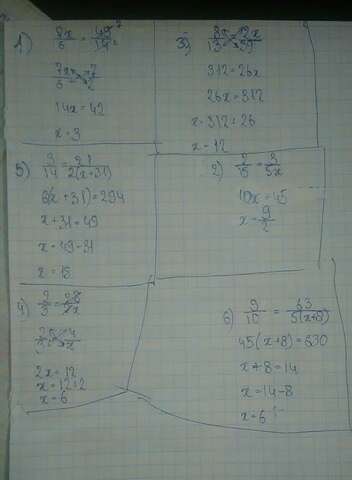 1) 8x/6 = 49/14
7x/6 = 7/2
14x = 42
x = 3
3) 8x/13 = 12x/39
312 = 26x
26x = 312
x = 312 : 26
x = 12
5) 3/14 = 21/2(x+31)
6(x+31) = 294
x + 31 = 49
x = 49 - 31
x = 18
2) 2/15 = 3/5x
10x = 45
x = 9/2
4)
2x = 12
x = 12 : 2
x = 6
6) 9/10 = 63/5(x+8)
45(x+8) = 630
x + 8 = 14
x = 14 - 8
x = 6